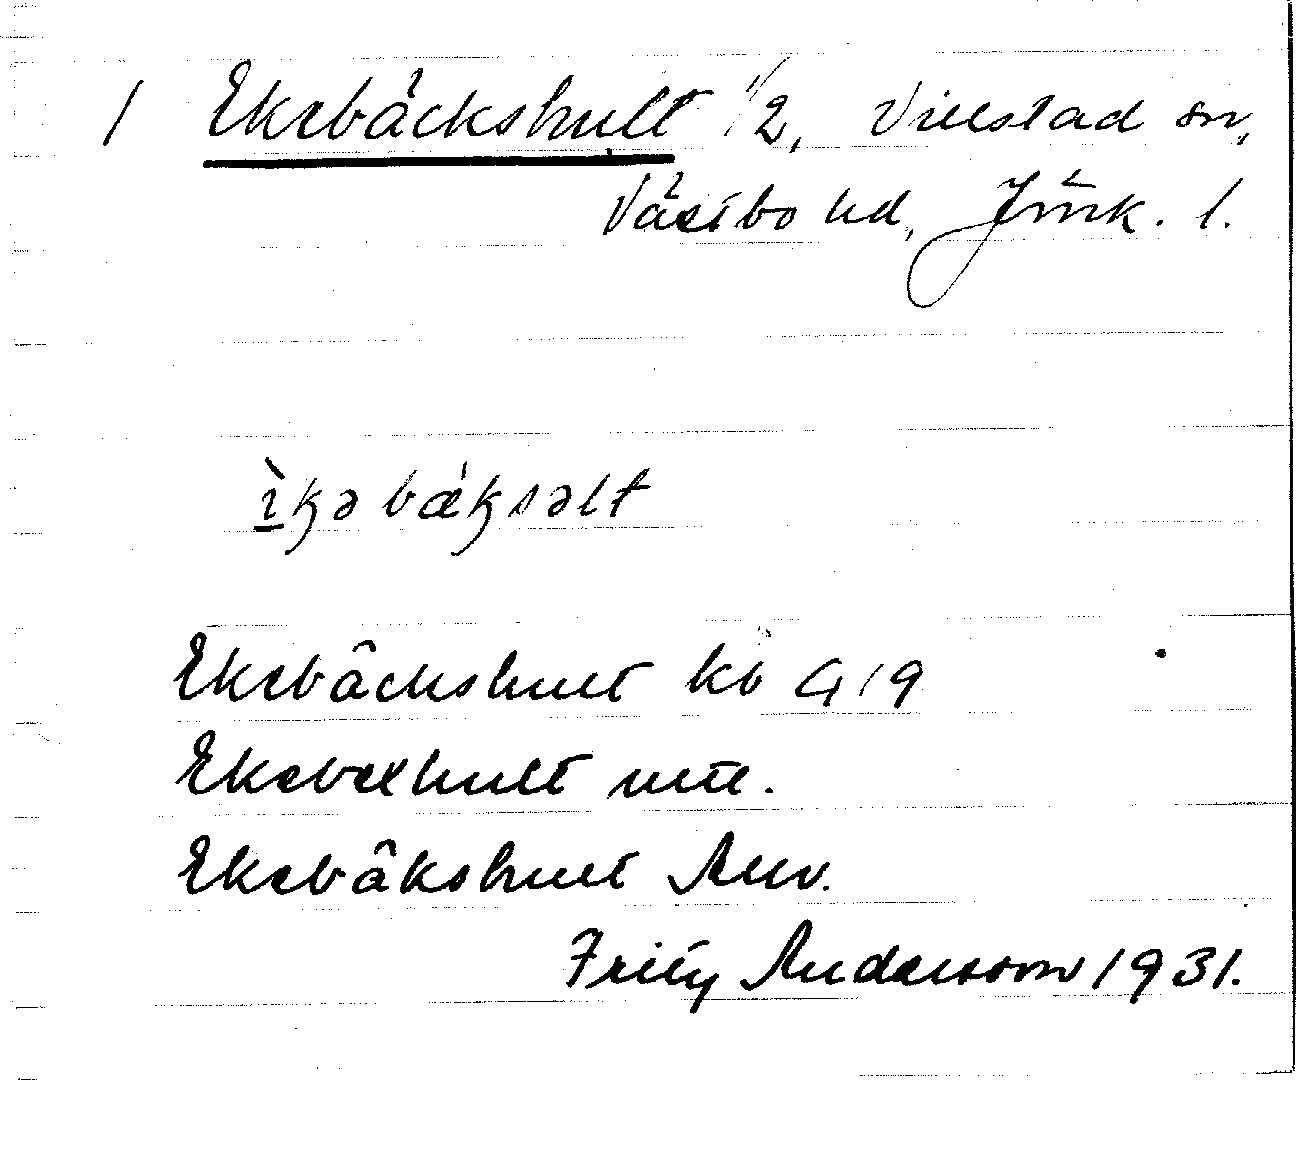 1 Ekebäckshult 1/2, Villstad sn,
Västbo hd, Jönk. l.
ìkə bæksəlt
Ekebäckshult kb G 19
Ekebexhult
Ekebäkshult
Fritz Andersson 1931.